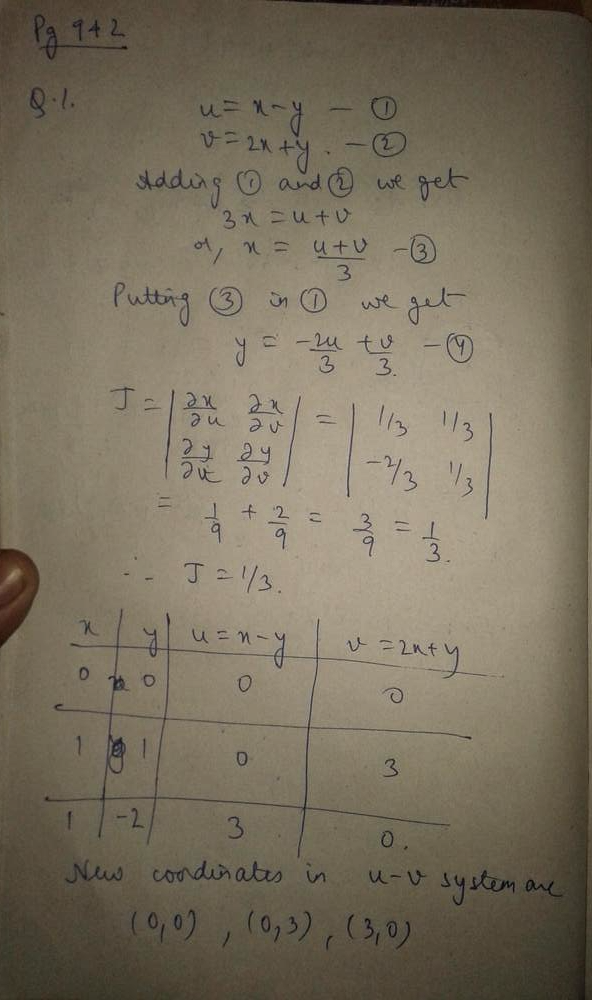 Pg 942
Q.1.
u = x-y — ①
v = 2x+y. — ②
Adding ① and ② we get
3x = u+v
or, x = (u+v)/3 — ③
Putting ③ in ① we get
y = -2u/3 + v/3. — ④
J = | ∂x/∂u ∂x/∂v | = | 1/3 1/3 |
| ∂y/∂u ∂y/∂v | | -2/3 1/3 |
= 1/9 + 2/9 = 3/9 = 1/3.
∴ J = 1/3.
x y u = x-y v = 2x+y
0 0 0 0
1 1 0 3
1 -2 3 0.
New coordinates in u-v system are
(0,0) , (0,3) , (3,0)